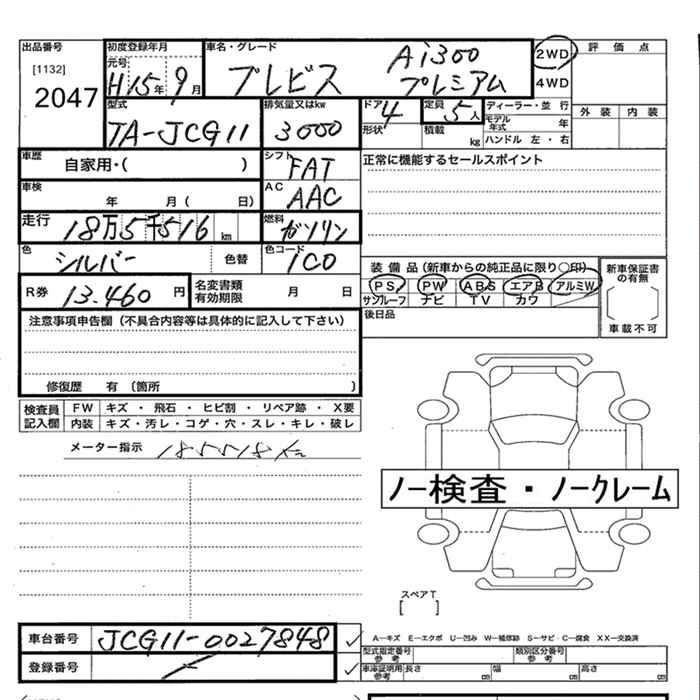 出品番号 初度登録年月 車名・グレード 評価点
[1132] 元号 Ai300 2WD
2047 H15年9月 ブレビス プレミアム 4WD
型式 排気量又はkw ドア 定員 ディーラー・並行 外装 内装
TA-JCG11 3000 4 5人 モデル年式 年
形状 積載 kg ハンドル 左・右
車歴 自家用・( ) シフト FAT 正常に機能するセールスポイント
車検 年 月( 日) AC AAC
走行 18万5千516km 燃料 ガソリン
色 シルバー 色替 色コード 1C0
装備品(新車からの純正品に限り〇印) 新車保証書の有無
R券 13.460円 名変書類有効期限 月 日 PS PW ABS エアB アルミW
サンルーフ ナビ TV カワ
注意事項申告欄(不具合内容等は具体的に記入して下さい) 後日品 車載不可
修復歴 有 (箇所 )
検査員記入欄 FW キズ・飛石・ヒビ割・リペア跡・X要
内装 キズ・汚レ・コゲ・穴・スレ・キレ・破レ
メーター指示 185518km
ノー検査・ノークレーム
スペアT
[ ]
車台番号 JCG11-0027848 ✓
A−キズ E−エクボ U−凹み W−補修跡 S−サビ C−腐食 XX−交換済
型式指定番号 参考 類別区分番号 参考
登録番号 ✓ 車庫証明用参考 長さ 幅 高さ